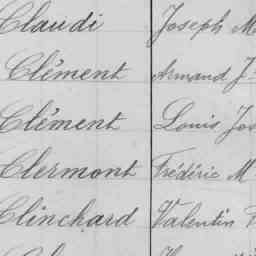 Claudi Joseph M
Clément Armand J
Clément Louis Jos
Clermont Frédéric M
Clinchard Valentin